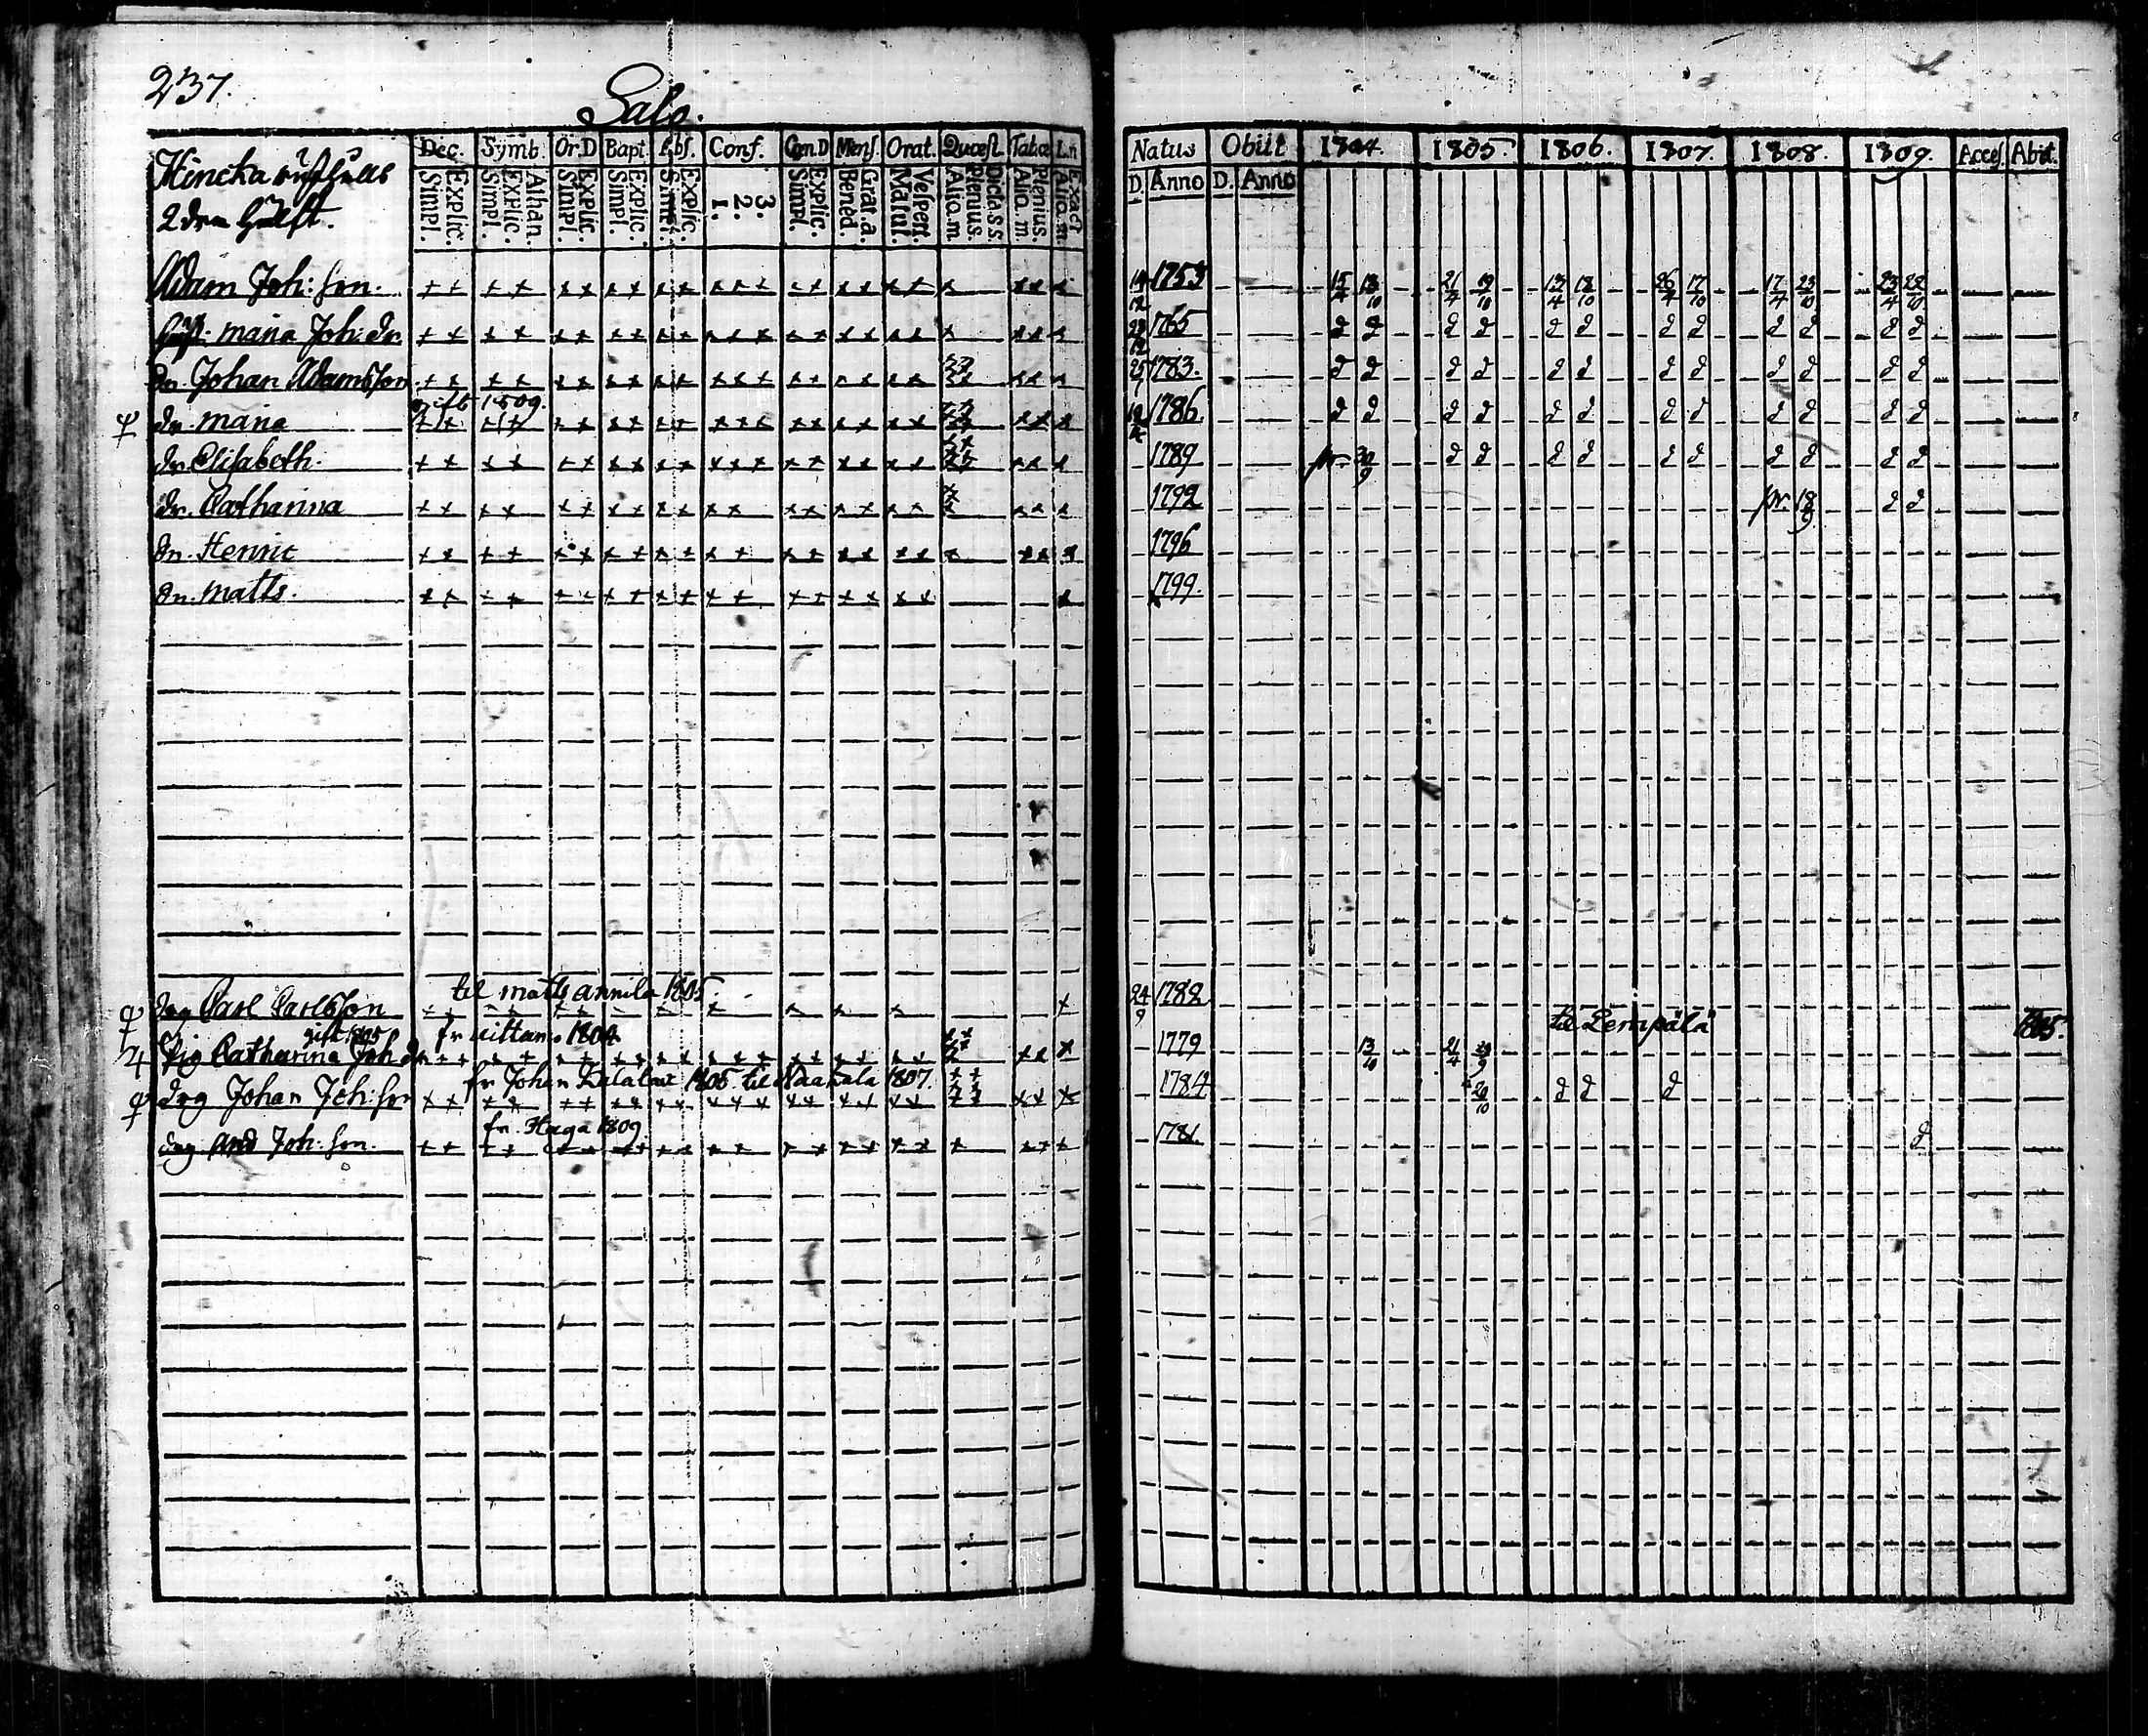 237.
Salo.
Hincka rusthålls
2dra Hälft.
Dec. Symb. Or.D Bapt. Abs. Conf. Cœn.D Mens. Orat. Quæst. Tabæ Ln
Explic. Simpl. Athan. Explic. Simpl. Explic. Simpl. Explic. Simpl. Explic. Simpl. 3. 2. 1. Explic. Simpl. Grat. a. Bened. Vesperi. Matut. Dicta s.s. Plenius. Alio. m Plenius. Alio. m. Exact Alio. m.
Natus Obiit 1804. 1805. 1806. 1807. 1808. 1809. Acces Abit.
D. Anno D. Anno
Adam Joh: son. 1753 15/4 13/10 21/4 19/10 13/4 18/10 26/4 17/10 17/4 23/10 23/4 22/10
Hust. Maria Joh: dr. 1765 d d d d d d d d d d d d
Sn. Johan Adamsson 25 1783. d d d d d d d d d d d d
gift 1809.
dr. Maria 1786. d d d d d d d d d d d d
dr. Elisabeth. 1789 pr. 30/9 d d d d d d d d d d
dr. Catharina 1792 pr. 18/9 d d
Sn. Henric 1796
Sn. Matts. 1799.
til Matts Annila 1805
drg Carl Carlsson 24/9 1782
gift 1805 fr. 1804 til Lempälä 1805.
pig Catharina Joh: dr 1779 13/10 21/4
fr Johan 1805 til 1807.
drg Johan Joh: son 1784 20/10 d d d
fr. Haga 1809
drg And Joh: son. 1781. d